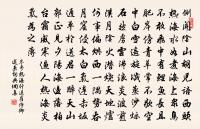 側聞陰山胡兒語西頭
熱海水如煮海上衆鳥
不敢飛中有鯉魚長且
肥岸旁青草常不歇空
中白雪遙旋滅蒸沙爍
石燃虜雲沸浪炎波煎
漢月陰火潛燒天地爐
何事偏烘西一隅勢吞
月窟侵太白氣連赤坂
通單于送君一醉天山
郭正見夕陽海邊落柏
臺霜威寒逼人熱海炎
氣為之薄
岑參熱海行送崔侍御
還京